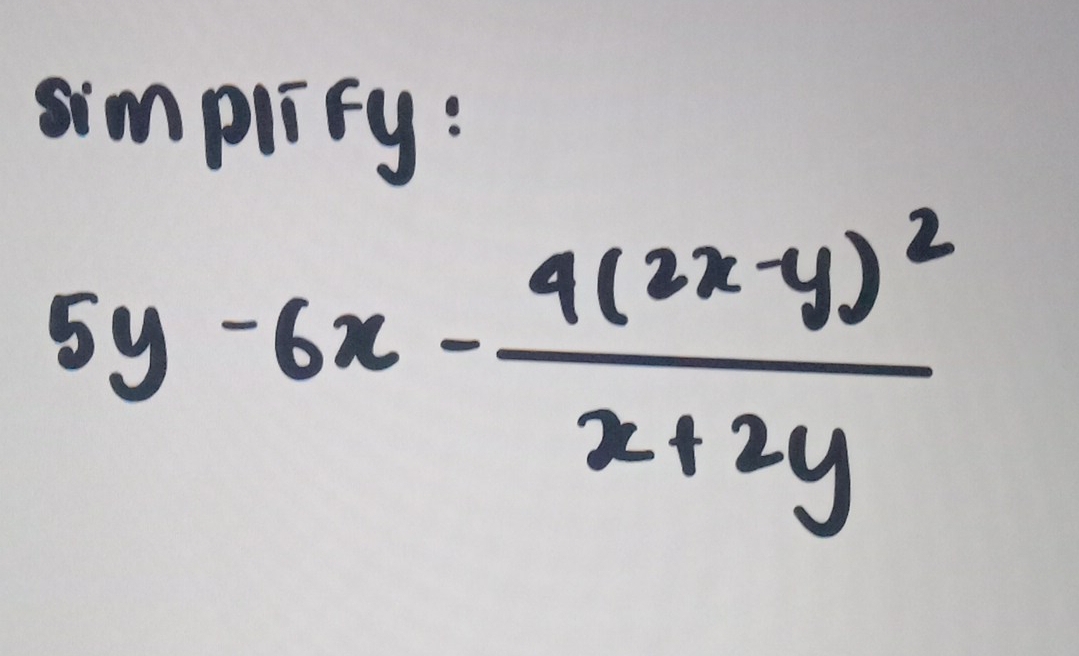 simplify:
5y - 6x - \frac{4(2x-y)^2}{x+2y}